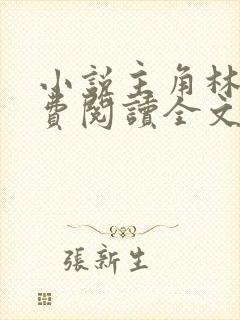 小說主角林
費閱讀全文
張新生